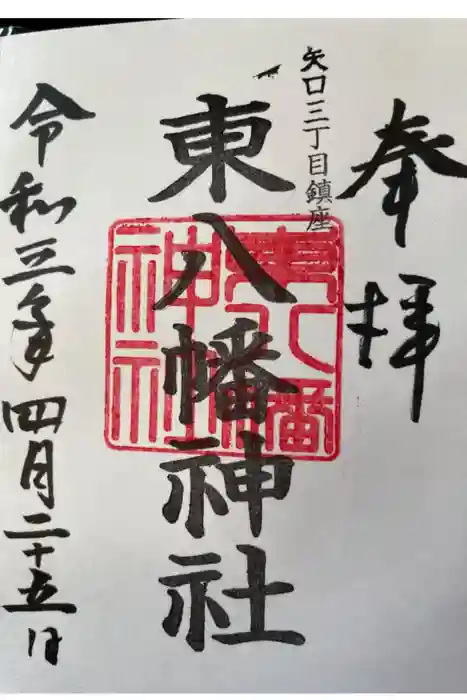 奉拝
矢口三丁目鎮座
東八幡神社
東八幡神社
令和三年四月二十五日